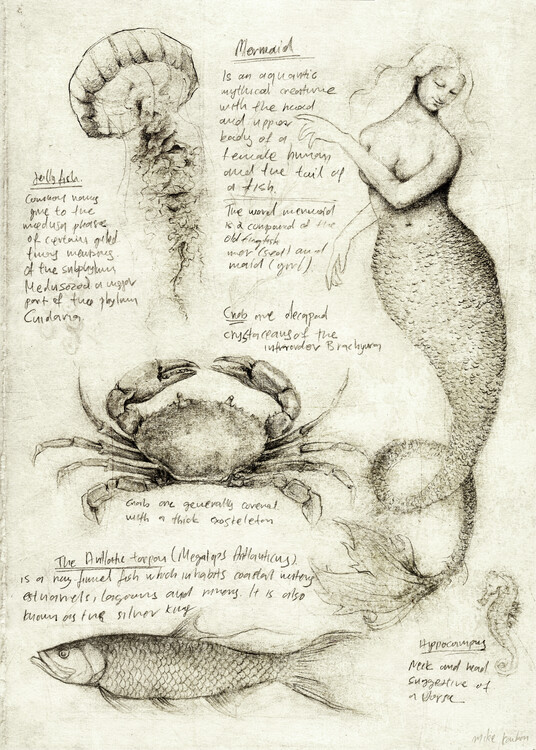 Mermaid
Is an aquantic
mythical creature
with the head
and upper
body of a
female human
and the tail of
a fish.
The word mermaid
is a compound of the
old English
mer (sea) and
maid (girl).
Jelly fish.
Common name
give to the
medusa phases
of certain
members
of the subphylum
Medusozoa a major
part of the phylum
Cnidaria
Crab are decapod
crystaceans of the
infraorder Brachyura
Crab are generally covered
with a thick exosteleton
The Atllatic tarpon (Megalops Atlanticus)
is a ray finned fish which inhabits coastal waters
estuaries, lagoons and rivers. It is also
known as the silver king
Hippocampus
Neck and head
suggestive of
a Horse
mike